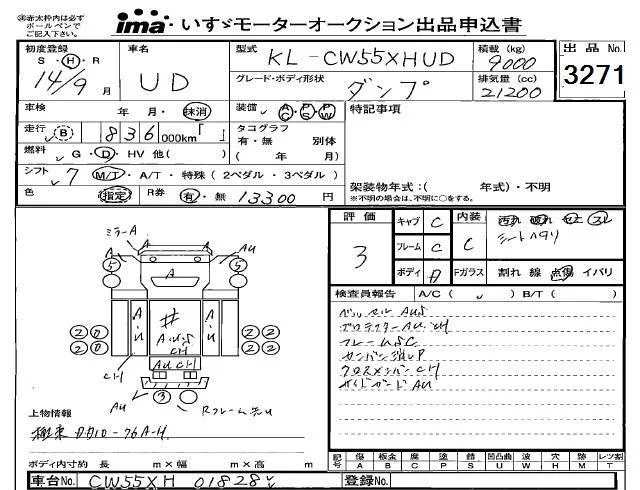 ㊟赤太枠内は必ず
ボールペンで
ご記入下さい。
ima いすゞモーターオークション出品申込書
初度登録
S・H・R
14/9 月
車名
UD
型式
KL-CW55XHUD
積載 (kg)
9000
出品 No.
3271
グレード・ボディ形状
ダンプ
排気量 (cc)
21200
車検 年 月・抹消
装備 AC・PS・PW
特記事項
走行 B 836 000km「 」
タコグラフ
有・無 別体
( 年 月)
燃料 G・D・HV 他( )
シフト 7 M/T・A/T・特殊(2ペダル・3ペダル)
架装物年式:( 年式)・不明
※不明の場合は、不明に○をする。
色 指定 R券 有・無 13300 円
評価
3
キャブ C
フレーム C
ボディ A
内装
C
汚れ 破れ
シートヘタリ
Fガラス 割れ 線 点傷 イバリ
検査員報告 A/C( ) B/T( )
ベッセル AUS
プロテクター AU CH
フレーム SC
カンバン消し P
クロスメンバー CH
サイドガード AU
ミラーA
A
AU
5
5
A
A・U
#
A・U・S
CH
A・U
2 0
2 0
2 2
2 2
AU CH
CH
AU
3
Rフレーム
上物情報
極東 DD10-76A-H
ボディ内寸約 長 m×幅 m×高 m
記号
傷 板金 腐 塗 錆 凹凸曲 波 穴 跡 レツ割
A B C P S U W H M T
車台No. CW55XH 01828
登録No.